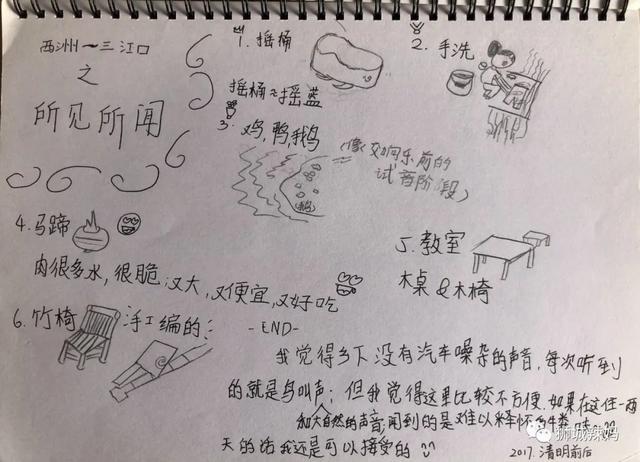 西洲~三江口
之
所见所闻
1. 摇桶
摇桶≈摇篮
2. 手洗
3. 鸡,鸭,鹅
(像交响乐前的
试音阶段)
4. 马蹄
肉很多水,很脆,又大,又便宜,又好吃
5. 教室
木桌&木椅
6. 竹椅
手工编的:
-END-
我觉得乡下没有汽车嘈杂的声音,每次听到
的就是鸟叫声;但我觉得这里比较不方便.如果在这住一两
和大自然的声音,闻到的是难以释怀的牛粪味
天的话我还是可以接受的
2017.清明前后
狮城辣妈